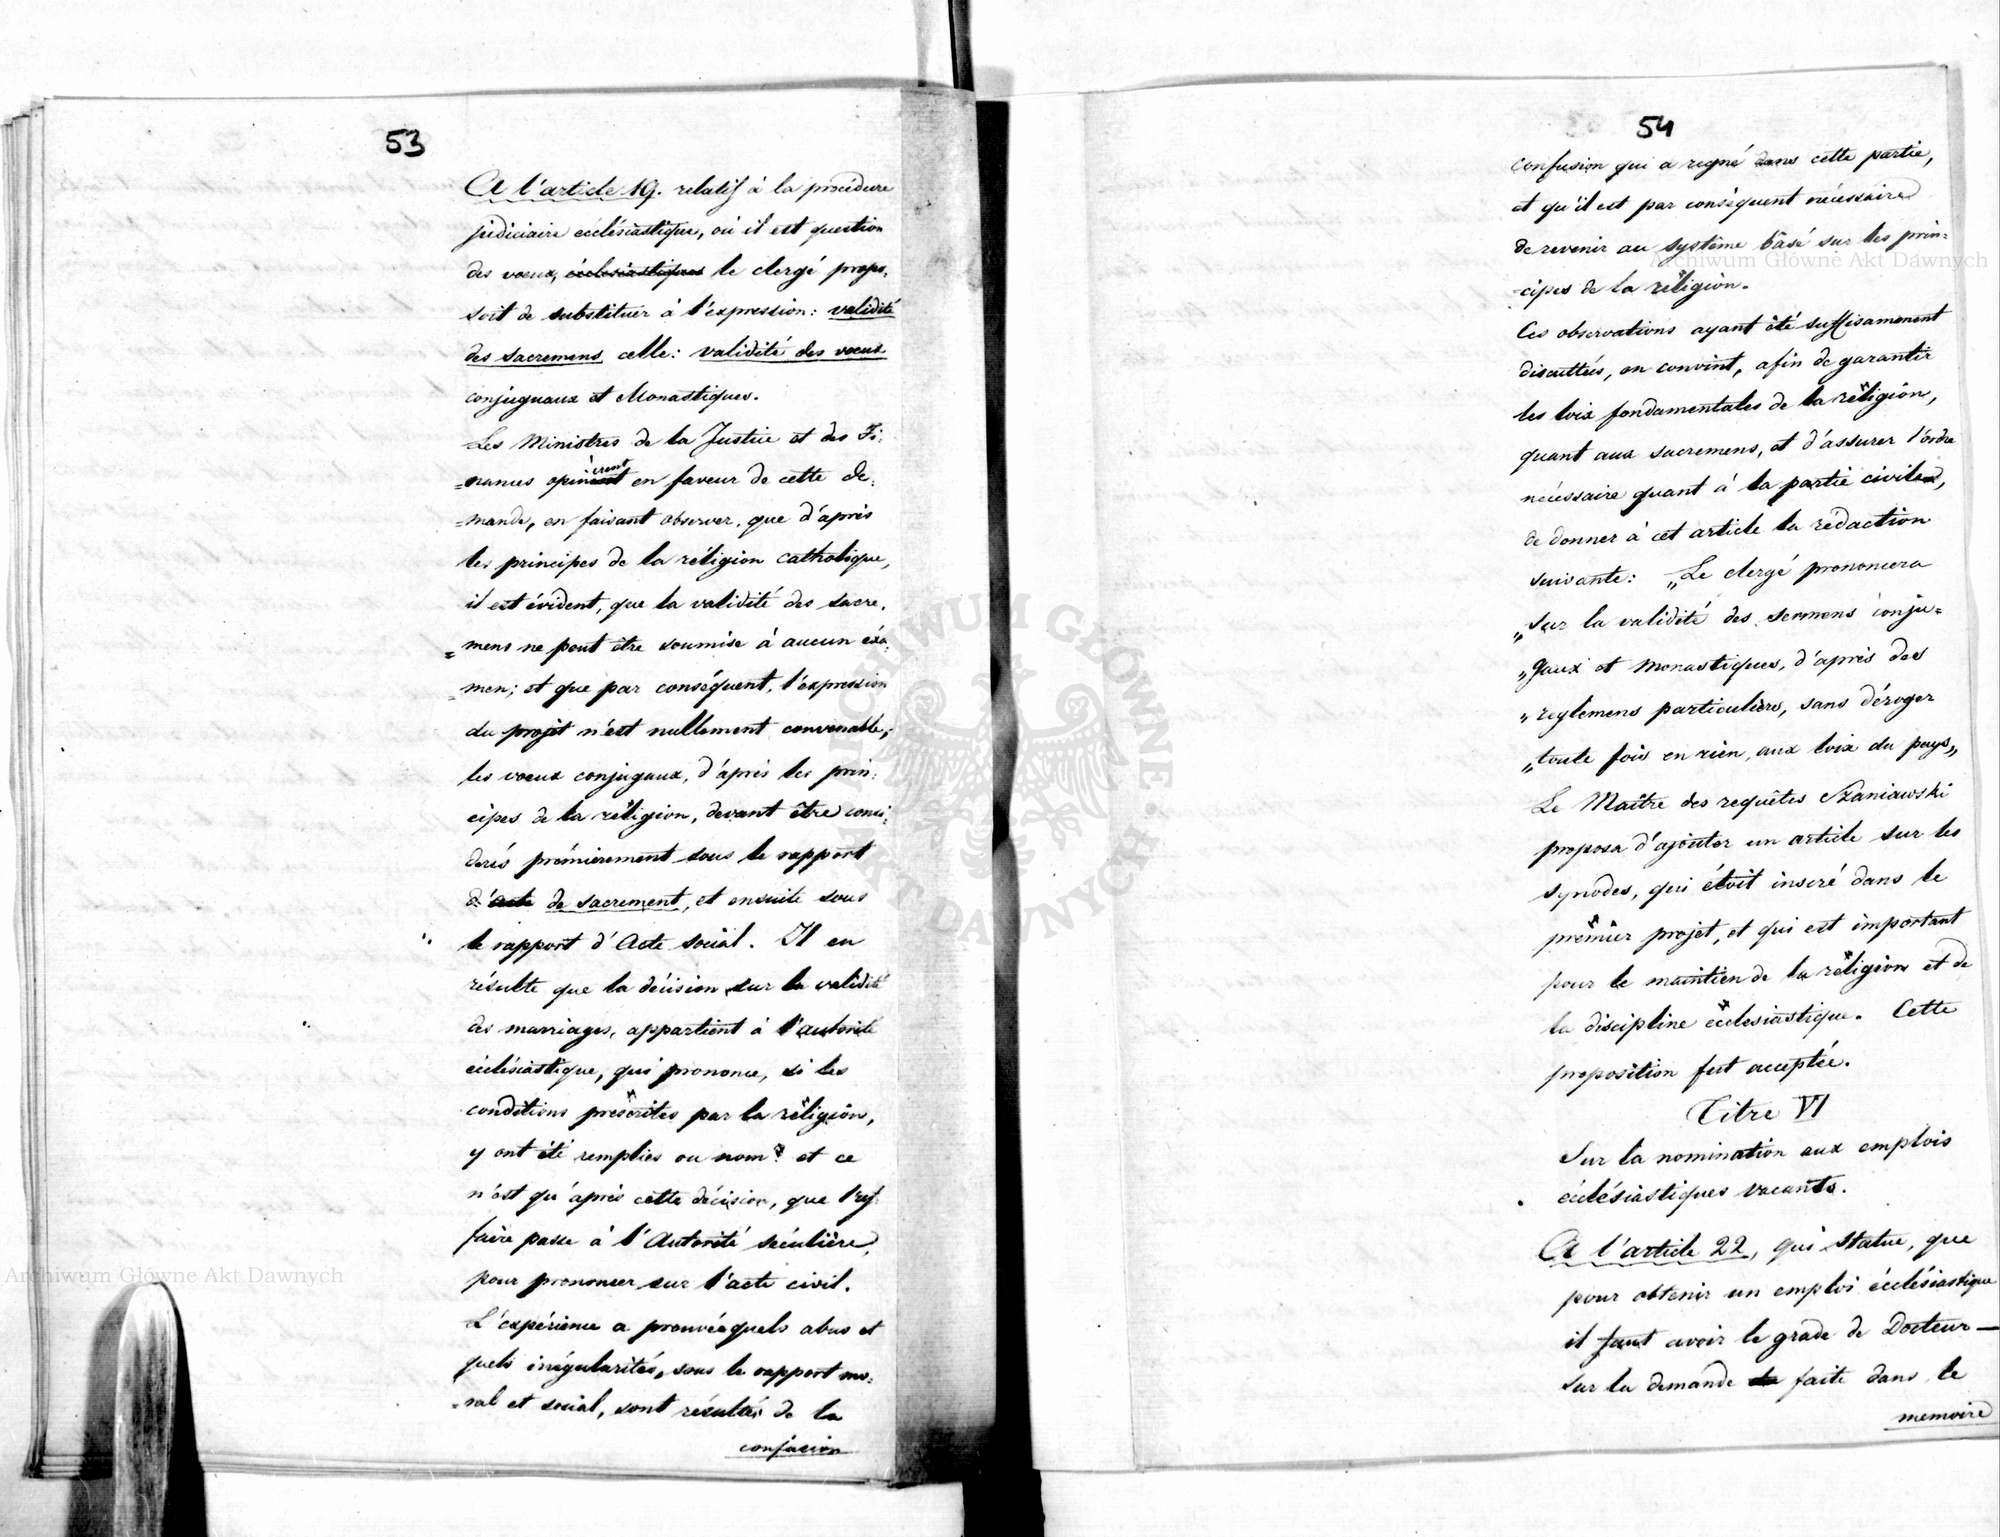 53
A l'article 19. relatif à la procédure
judiciaire ecclésiastique, où il est question
des voeux, écclésiastiques le clergé propo-
soit de substituer à l'expression: validité
des sacremens celle: validité des voeux
conjuguaux et Monastiques.
Les Ministres de la Justice et des Fi-
=nances opinèrent en faveur de cette de-
=mande, en faisant observer, que d'après
les principes de la réligion catholique,
il est évident, que la validité des sacre-
=mens ne peut être soumise à aucun éxa-
men; et que par conséquent, l'expression
du projet n'est nullement convenable,
les voeux conjugaux, d'après les prin-
cipes de la réligion, devant être consi-
derés prémièrement sous le rapport
d'acte de sacrement, et ensuite sous
le rapport d'Acte social. Il en
résulte que la décision sur la validité
des marriages, appartient à l'autorité
écclésiastique, qui prononce, si les
conditions prescrites par la réligion,
y ont été remplies ou non? et ce
n'est qu'après cette décision, que l'af-
faire passe à l'Autorité séculière,
pour prononcer sur l'acte civil.
L'expérience a prouvée quels abus et
quels irrégularités, sous le rapport mo-
=ral et social, sont résultés de la
confusion
54
confusion qui a regné dans cette partie,
et qu'il est par conséquent nécessaire
de revenir au système basé sur les prin-
-cipes de la réligion.
Ces observations ayant été suffisamment
discuttées, on convint, afin de garantir
les loix fondamentales de la réligion,
quant aux sacremens, et d'assurer l'ordre
nécessaire quant à la partie civile,
de donner à cet article la redaction
suivante: „Le clergé prononcera
„sur la validité des sermens conju-
„gaux et monastiques, d'après des
„reglemens particuliers, sans déroger
„toute fois en rien, aux loix du pays„
Le Maître des requêtes Szaniawski
proposa d'ajouter un article sur les
synodes, qui étoit inseré dans le
prémier projet, et qui est important
pour le maintien de la réligion et de
la discipline écclesiastique. Cette
proposition fut acceptée.
Titre VI
Sur la nomination aux emplois
écclésiastiques vacants.
A l'article 22, qui statue, que
pour obtenir un emploi écclésiastique
il faut avoir le grade de Docteur —
sur la demande faite dans le
memoire
Archiwum Główne Akt Dawnych
Archiwum Główne Akt Dawnych
ARCHIWUM GŁÓWNE AKT DAWNYCH